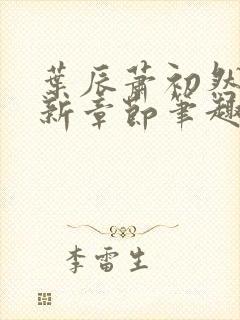 葉辰蕭初然
新章節筆趣
李雷生